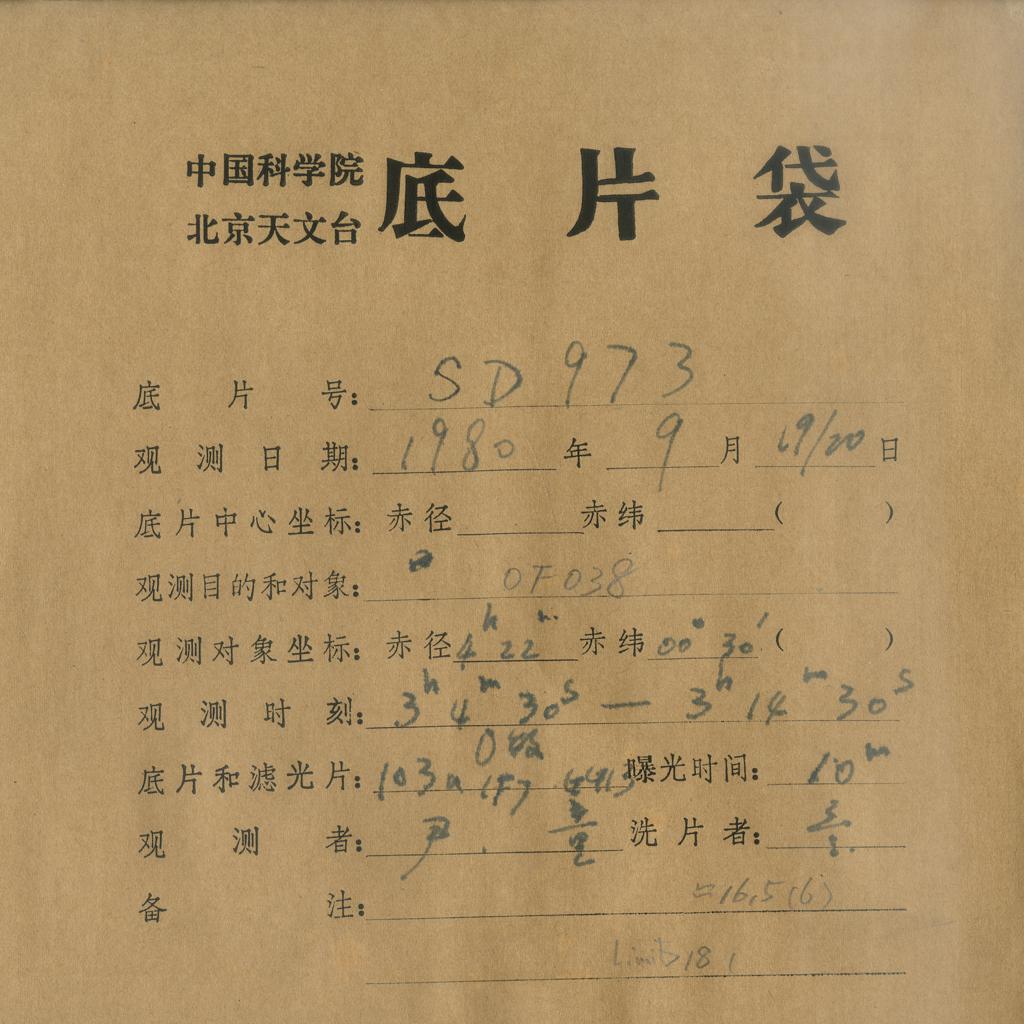 中国科学院
北京天文台 底片袋
底片号: SD 973
观测日期: 1980 年 9 月 19/20 日
底片中心坐标: 赤径 赤纬 ( )
观测目的和对象: OF 038
观测对象坐标: 赤径 4h 22m 赤纬 00° 30′ ( )
观测时刻: 3h 4m 30s — 3h 14m 30s
底片和滤光片: 103a 曝光时间: 10m
观测者: 尹. 洗片者:
备注: =16.5(6)
Limit 18